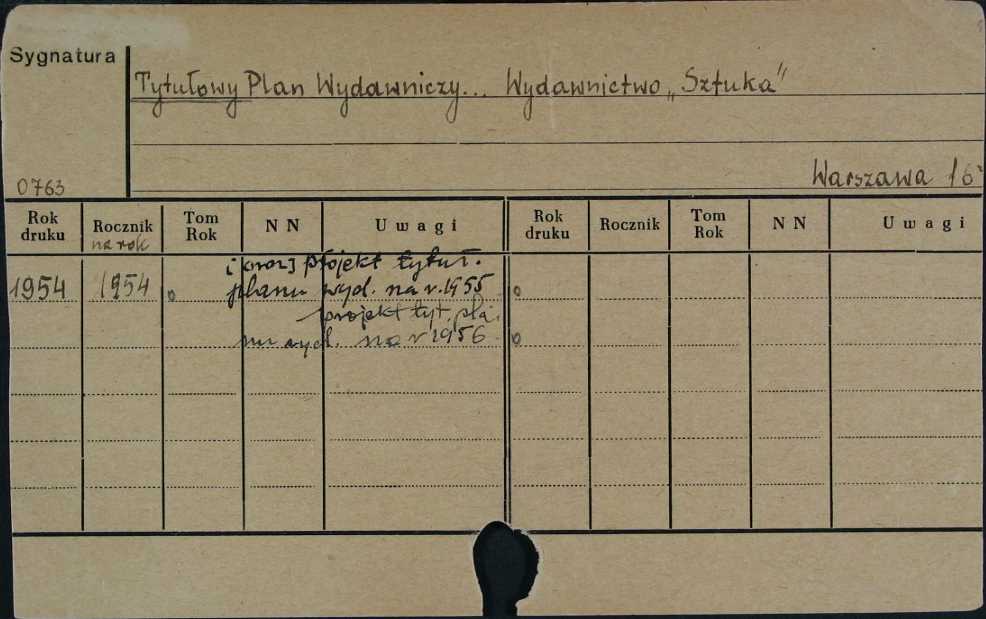 Sygnatura
Tytułowy Plan Wydawniczy... Wydawnictwo „Sztuka”
Warszawa 16°
0763
Rok druku Rocznik na rok Tom Rok N N Uwagi Rok druku Rocznik Tom Rok N N Uwagi
i [oraz] projekt tytuł.
1954 1954 planu wyd. na r. 1955
projekt tyt. pla.
nu wyd. na r 1956